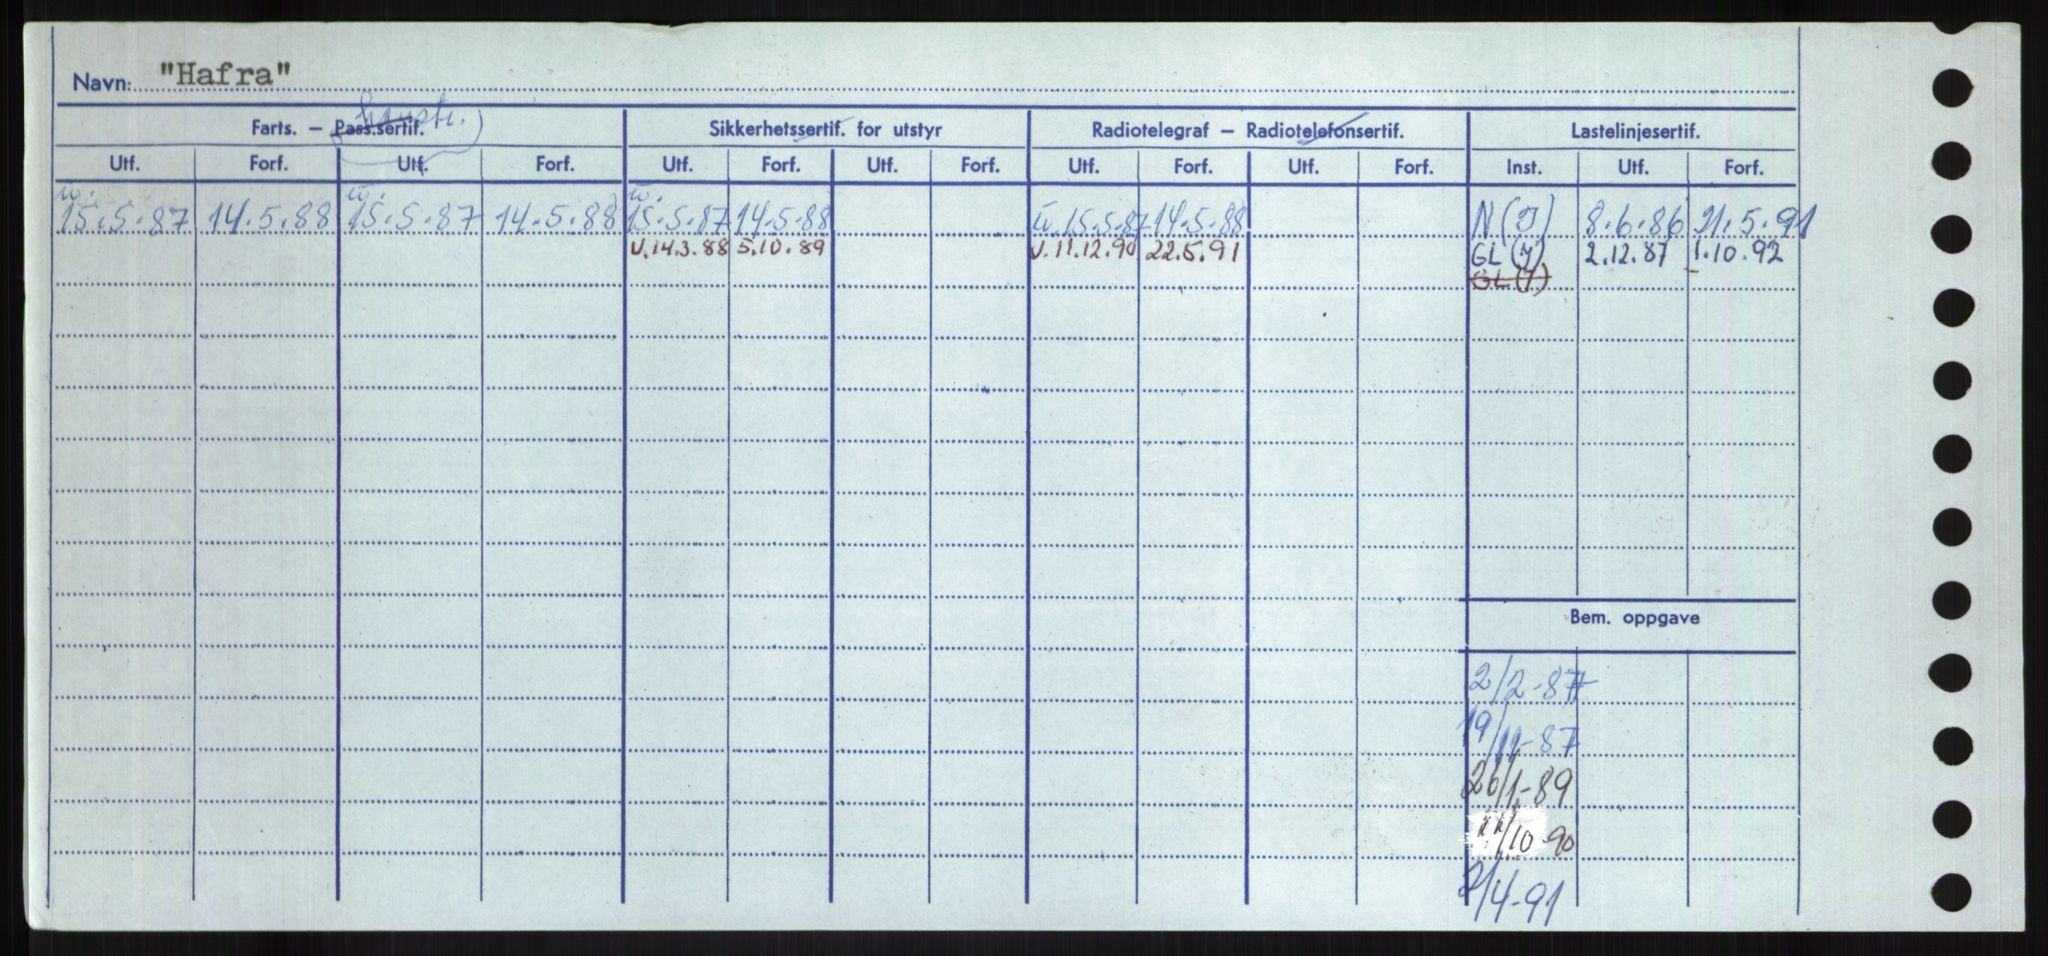 Navn: "Hafra"
konstr.
Farts. – Pass.sertif. Sikkerhetssertif. for utstyr Radiotelegraf – Radiotelefonsertif. Lastelinjesertif.
Utf. Forf. Utf. Forf. Utf. Forf. Utf. Forf. Utf. Forf. Utf. Forf. Inst. Utf. Forf.
15.5.87 14.5.88 15.5.87 14.5.88 15.5.87 14.5.88 15.5.87 14.5.88 N(I) 8.6.86 21.5.91
U.14.3.88 5.10.89 U.11.12.90 22.5.91 GL(I) 2.12.87 1.10.92
GL(I)
Bem. oppgave
2/2-87
19/11-87
26/1-89
/10-90
2/4-91